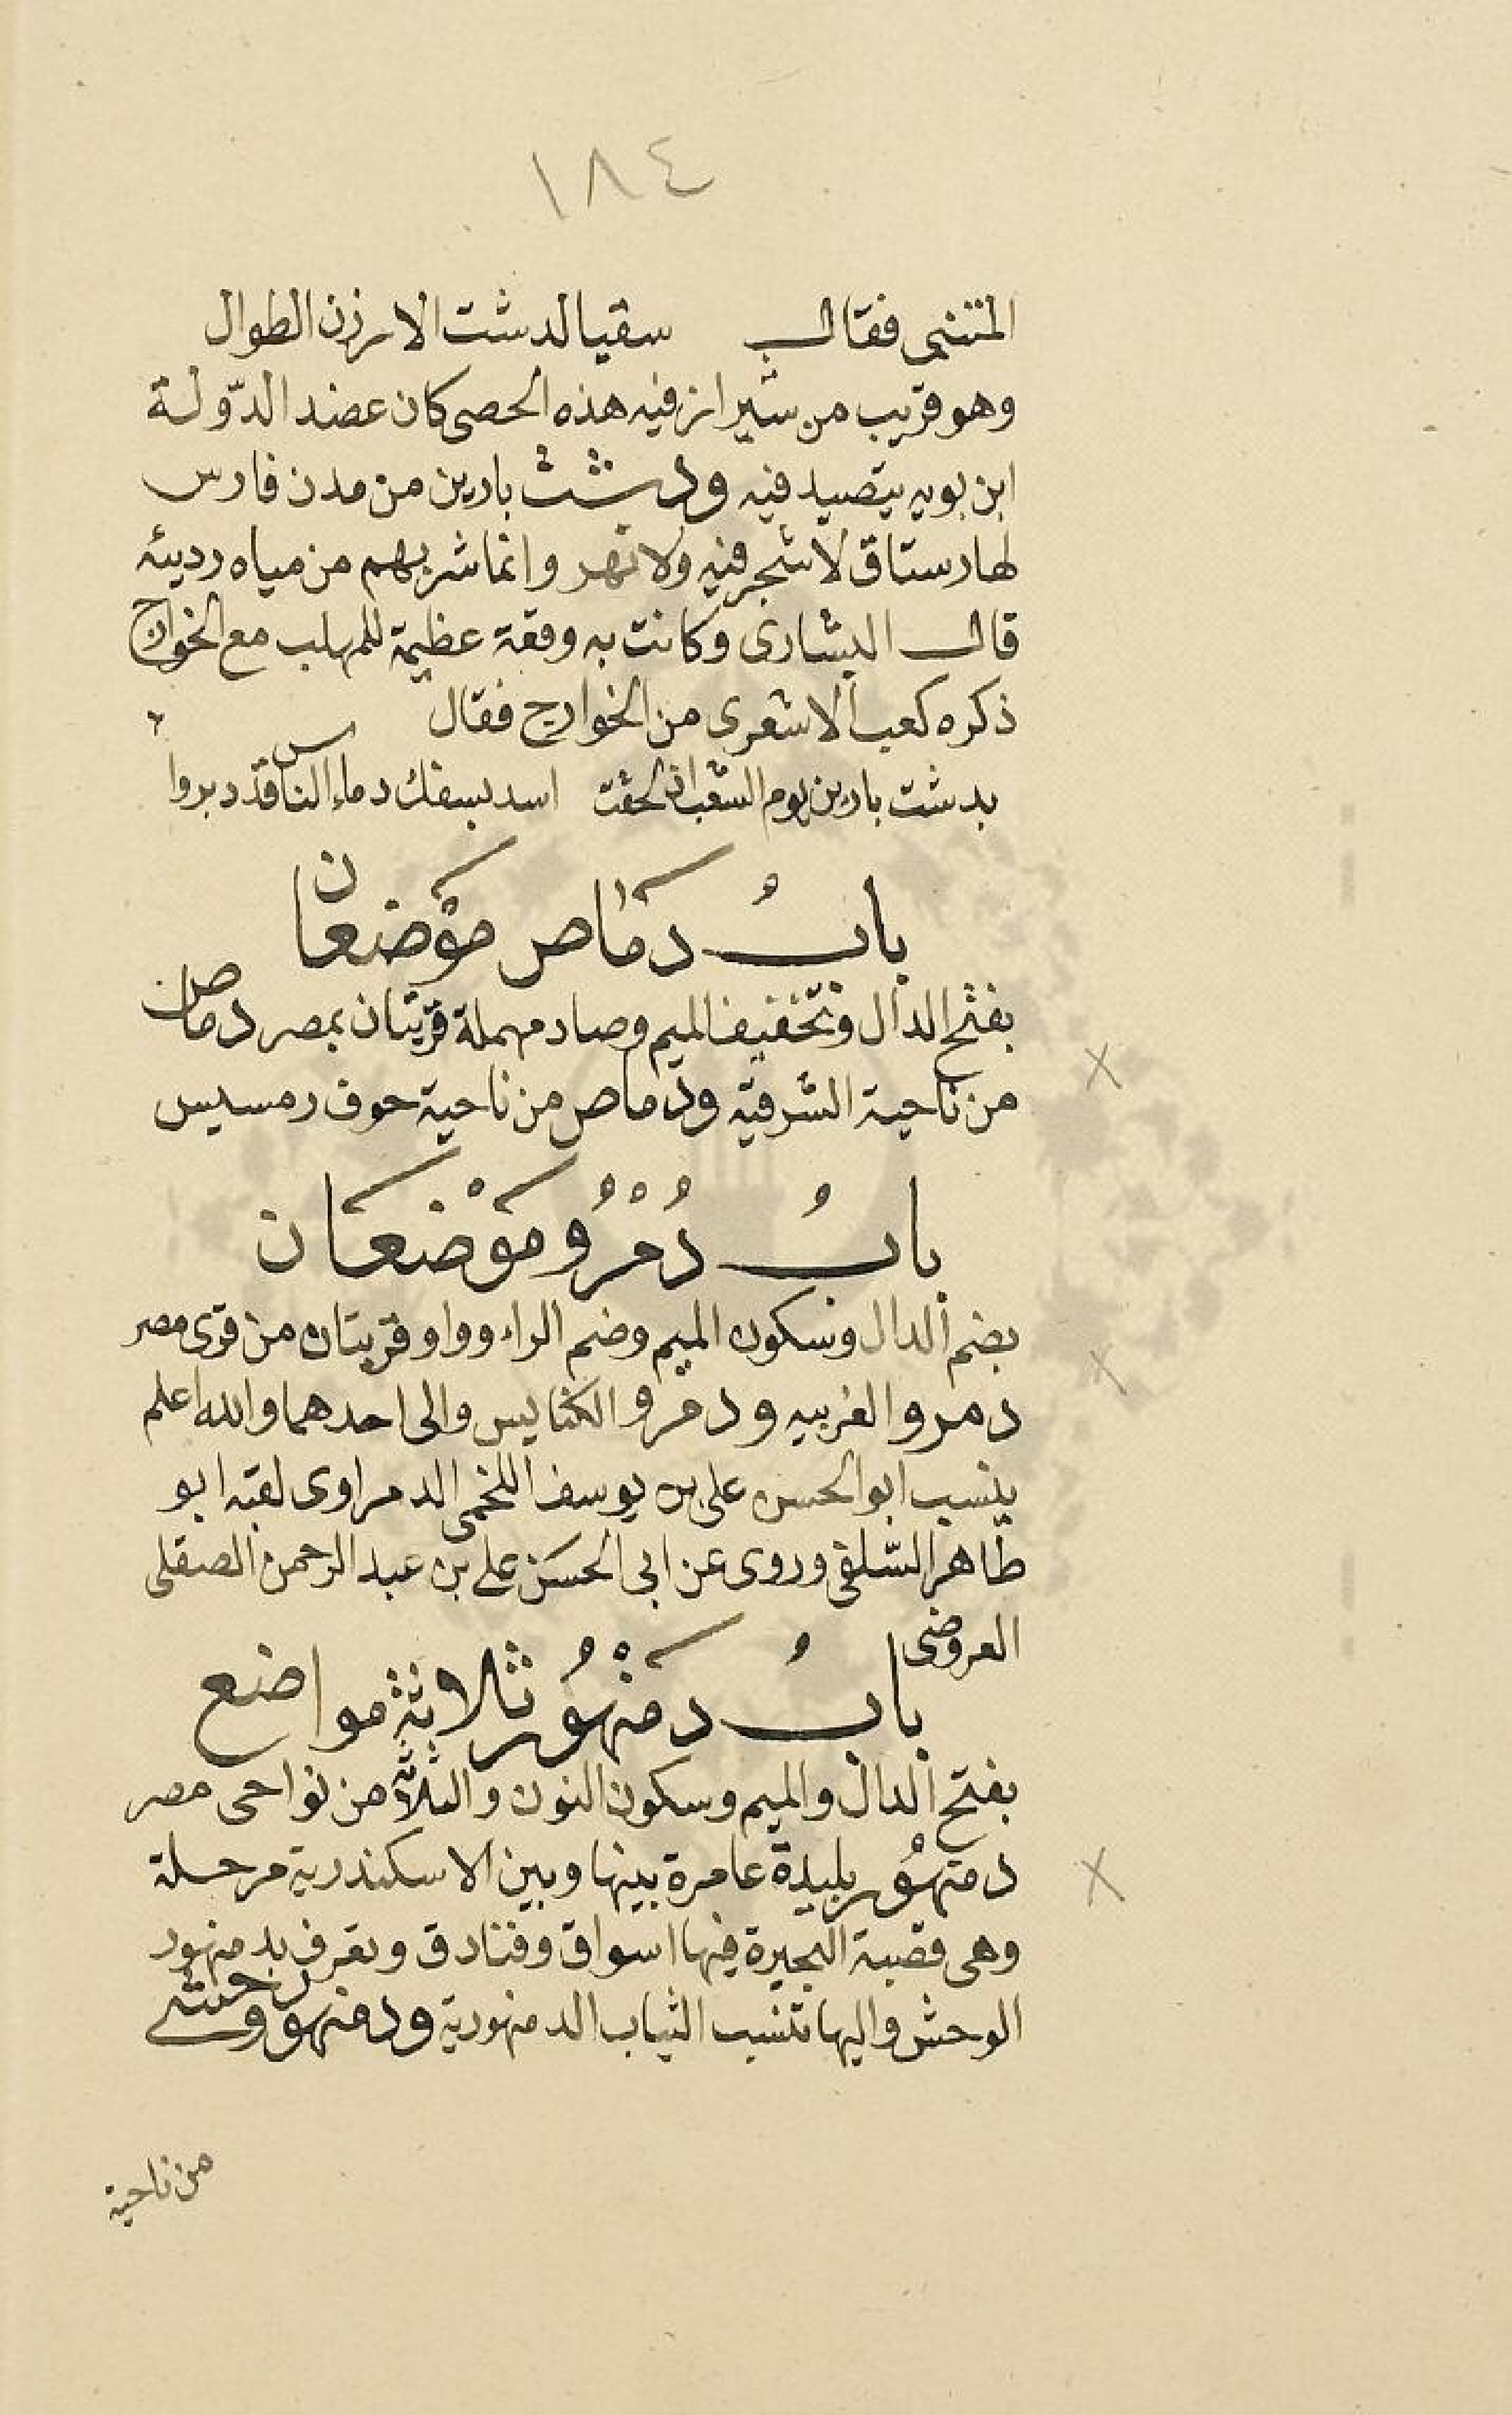 ١٨٤
المتنبى فقال سقيا لدشت الارزن الطوال
وهو قريب من شيراز فيه هذه الحصى كان عضد الدّولة
ابن بويه يتصيد فيه ودشت بارين من مدن فارس
لها رستاق لا شجر فيه ولا نهر وانما شربهم من مياه رديئه
قال البشارى وكانت به وقعة عظيمة للمهلب مع الخوارج
ذكره كعب الاشعرى من الخوارج فقال
بدشت بارين يوم الشعب اذ لحقت اسد بسفك دماء الناس قد دبروا
بابُ دَمَاص مَوْضعان
بفتح الدال وتخفيف الميم وصاد مهملة قريتان بمصر دماص
من ناحية الشرقية ودماص من ناحية حوف رمسيس
بابُ دُمْرُو مَوْضعَان
بضم الدال وسكون الميم وضم الراء وواو قريتان من قرى مصر
دمرو الغربيه ودمرو الكنايس والى احدهما والله اعلم
ينسب ابو الحسن على بن يوسف اللخمى الدمراوى لقيه ابو
طاهر السّلفى وروى عن ابى الحسَن على بن عبد الرحمن الصقلى
العروضى
بابُ دَمَنْهُور ثلاثة مواضع
بفتح الدال والميم وسكون النون والثلاثة من نواحى مصر
دمنهُور بليدة عامرة بينها وبين الاسكندرية مرحلة
وهى قصبة البحيرة فيها اسواق وفنادق وتعرف بدمنهور
الوحش واليها تنسب الثياب الدمنهورية ودمنهور وحشى
من ناحية